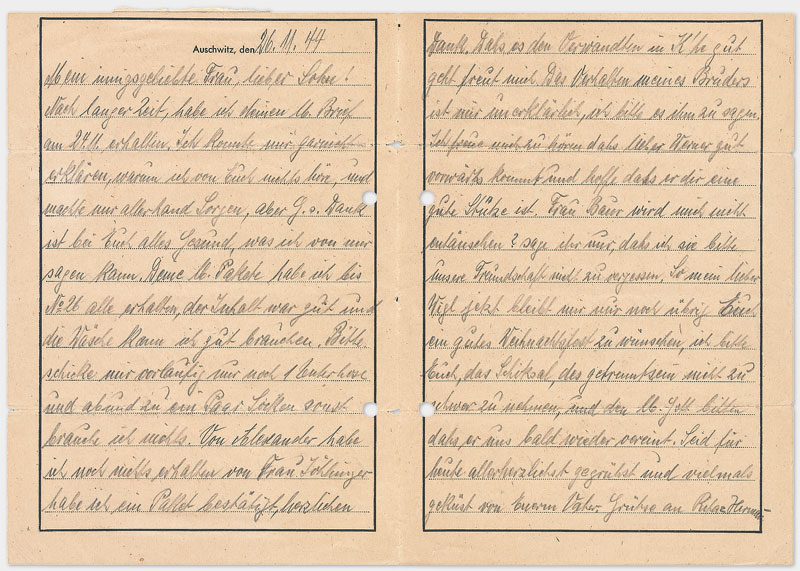 Auschwitz, den 26. 11. 44
Mein innigsgeliebte Frau, lieber Sohn!
Nach langer Zeit, habe ich deinen lb. Brief
am 24.11. erhalten. Ich konnte mir garnicht
erklären, warum ich von Euch nichts höre, und
machte mir allerhand Sorgen, aber G. s. Dank
ist bei Euch alles Gesund, was ich von mir
sagen kann. Deine lb. Pakete habe ich bis
No 26 alle erhalten, der Inhalt war gut und
die Wäsche kann ich gut brauchen. Bitte
schicke mir vorläufig nur noch 1 Unterhose
und ab und zu ein Paar Socken sonst
brauche ich nichts. Von Alexander habe
ich noch nichts erhalten von Frau
habe ich ein Paket bestätigt, herzlichen
Dank. Dahs es den Verwandten in K'he gut
geht freut mich. Das Verhalten meines Bruders
ist mir unerklärlich, ich bitte es ihm zu sagen.
Ich freue mich zu hören dahs lieber Werner gut
vorwärts kommt und hoffe dahs er dir eine
gute Stütze ist. Frau Bauer wird mich nicht
entäuschen? sage ihr nur, dahs ich sie bitte
unsere Freundschaft nicht zu vergessen. So mein lieber
jetzt bleibt mir nur noch übrig Euch
ein gutes Weihnachtsfest zu wünschen, ich bitte
Euch, das Schiksal, des getrenntsein nicht zu
schwer zu nehmen, und den lb. Gott bitten
dahs er uns bald wieder vereint. Seid für
heute allerherzlichst gegrühst und vielmals
geküst von Euerm Vater. Grühse an